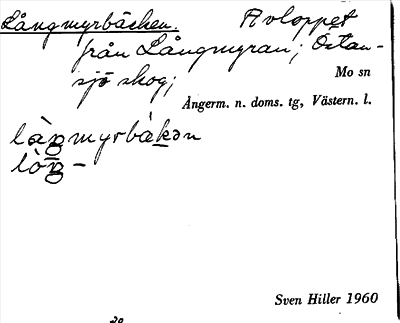 Långmyrbäcken. Avloppet
från Långmyran; Östan-
sjö skog;
Mo sn
Ångerm. n. doms. tg, Västern. l.
làŋmyrbàkən
lòŋ –
Sven Hiller 1960